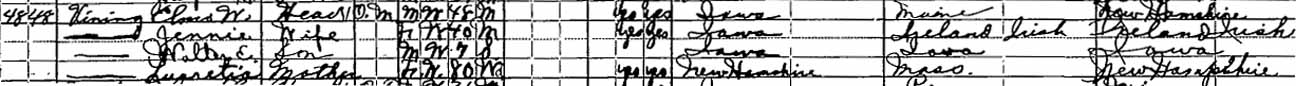 48 48 Vining Elmer W. Head O. M M W 48 M yes yes Iowa Maine New Hamshire
Jennie Wife F W 40 M yes yes Iowa Ireland Irish Ireland Irish
Walter E. Son M W 7 S Iowa Iowa Iowa
Lucretia Mother F W 80 Wd yes yes New Hamshire Mass. New Hampshire